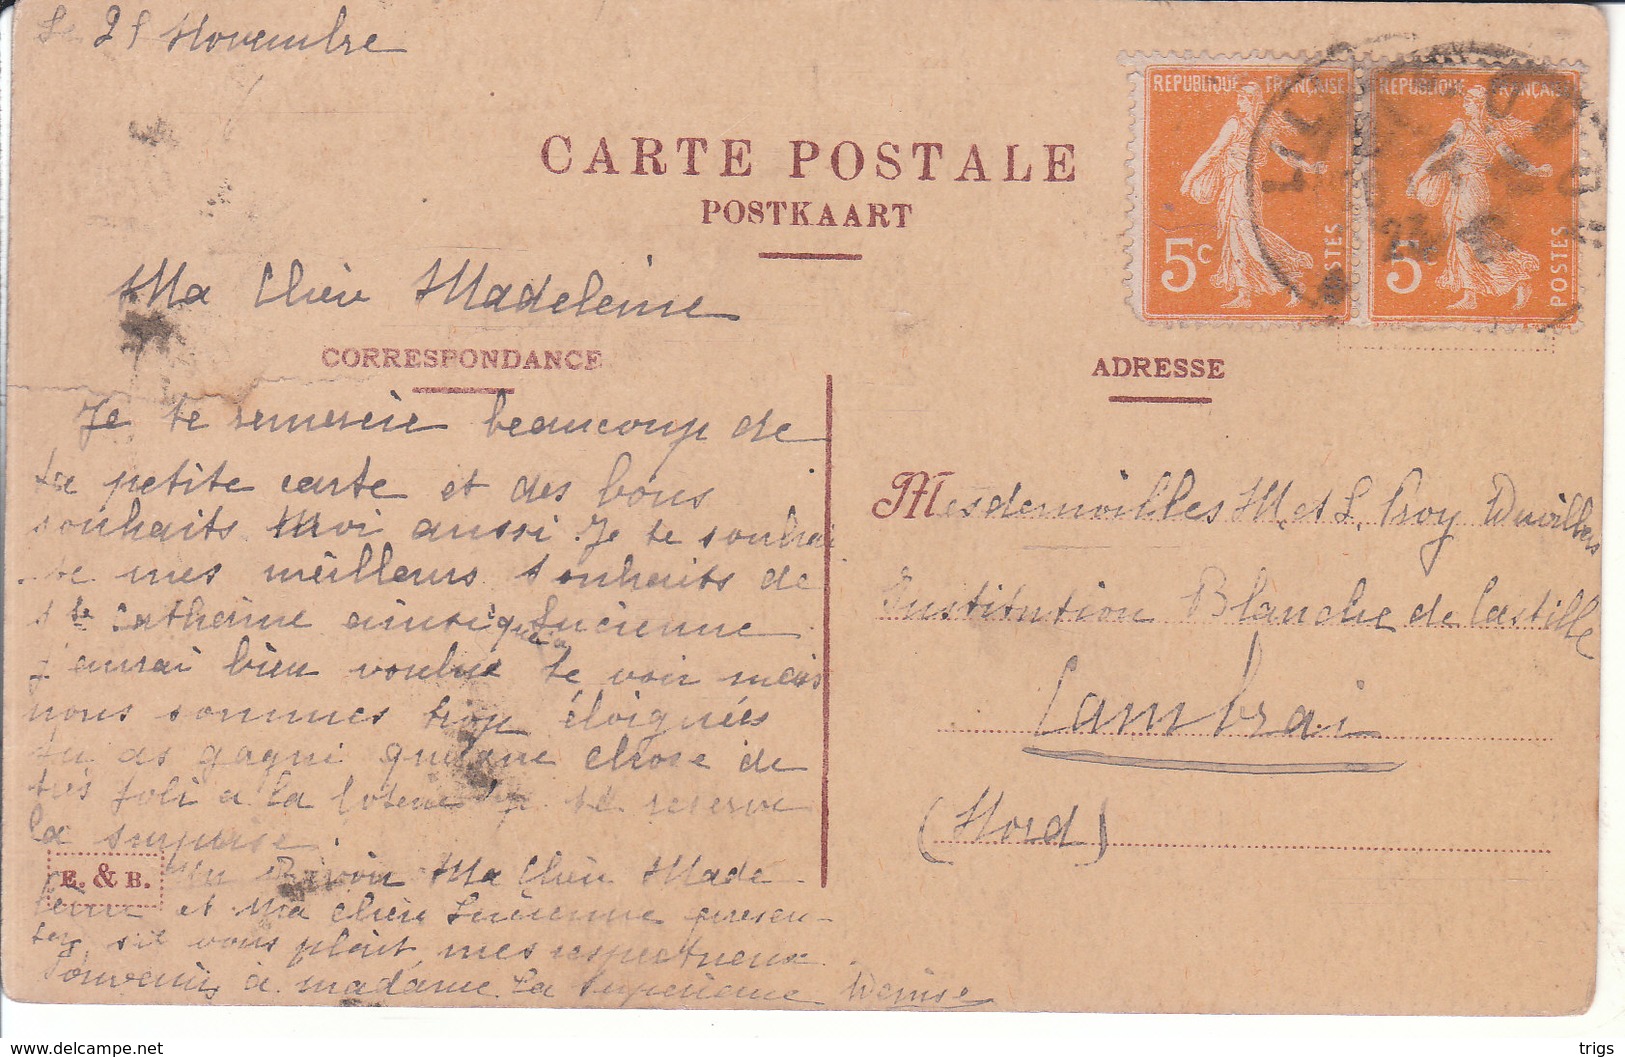 Le 25 Novembre
CARTE POSTALE
POSTKAART
REPUBLIQUE FRANÇAISE
5c
POSTES
REPUBLIQUE FRANÇAISE
5c
POSTES
LILLE
Ma Chère Madeleine
CORRESPONDANCE
Je te remercie beaucoup de
ta petite carte et des bons
souhaits. Moi aussi Je te souhai
te mes meilleurs souhaits de
Ste Catherine ainsi qu'à Lucienne
j'aurai bien voulue te voir mais
nous sommes trop éloignées
tu as gagné quelque chose de
très joli à la loterie je te reserve
la surprise.
Au Revoir Ma Chère Made
leine et Ma chère Lucienne presen-
tez s'il vous plait, mes respectueux
Souvenirs à madame La Supérieure Denise
E. & B.
ADRESSE
Mesdemoilles M. et L. Proy
Institution Blanche de Castille
Cambrai
(Nord)
delcampe.net
trigs